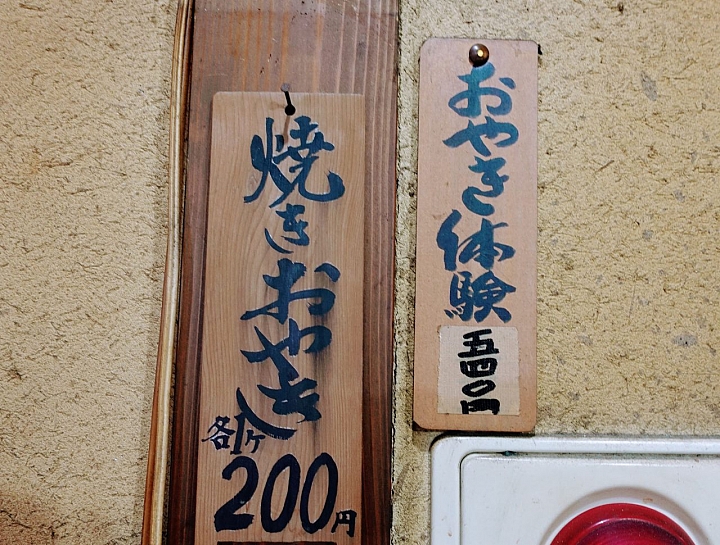 おやき体験
五四〇円
焼きおやき
各1ケ
200円